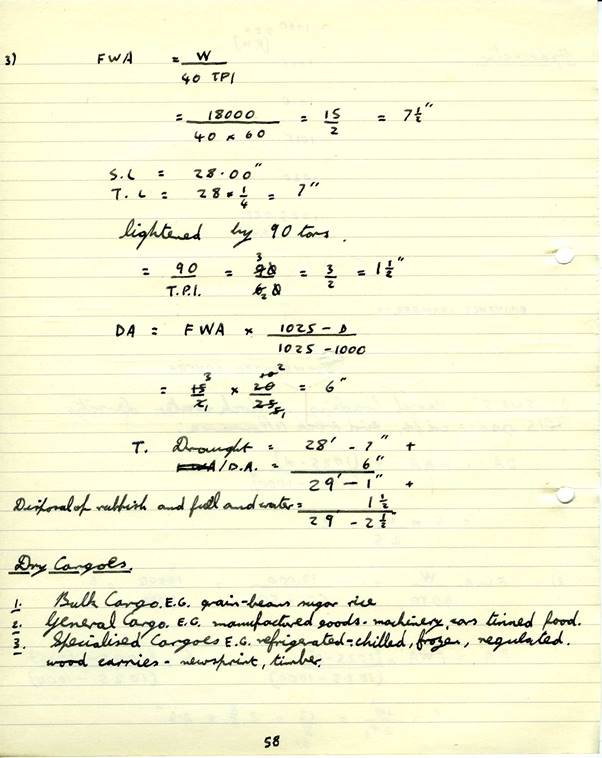 3) FWA = W / 40 TPI
= 18000 / 40 × 60 = 15 / 2 = 7 1/2"
S.L = 28.00"
T.L = 28 × 1/4 = 7"
lightened by 90 tons.
= 90 / T.P.I. = 90 3 / 6 2 0 = 3 / 2 = 1 1/2"
DA = FWA × 1025 - D / 1025 - 1000
= 15 3 / 2 1 × 20 10 2 / 25 5 1 = 6"
T. Draught = 28' - 7" +
/D.A. = 6"
29' - 1" +
Disposal of rubbish and fuel and water = 1 1/2
29 - 2 1/2
Dry Cargoes.
1. Bulk Cargo. E.G. grain-beans sugar rice
2. General Cargo. E.G. manufactured goods - machinery, cars tinned food.
3. Specialised Cargoes E.G. refrigerated - chilled, frozen, regulated.
wood carries - newsprint, timber.
58